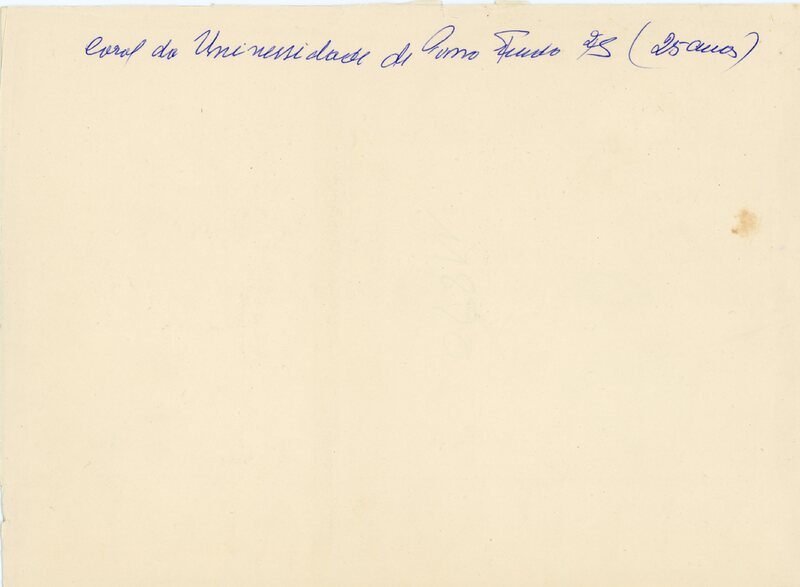 Coral da Universidade de Passo Fundo RS (25 anos)